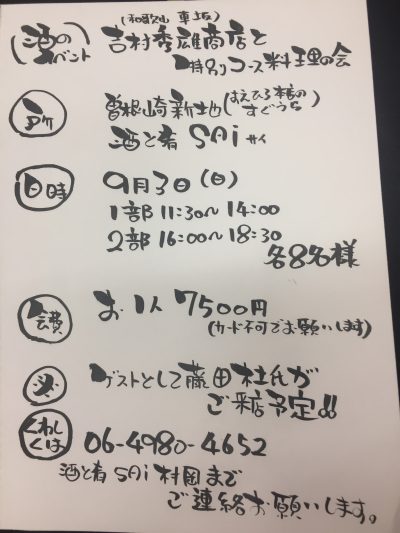 (和歌山 車坂)
酒のイベント 吉村秀雄商店と
特別コース料理の会
所 曽根崎新地(はえひろ本店のすぐうら)
酒と肴 SAi サイ
日時 9月3日(日)
1部 11:30〜14:00
2部 16:00〜18:30
各8名様
会費 お1人 7500円
(カード不可でお願いします)
ゲストとして藤田杜氏が
ご来店予定!!
くわしくは 06-4980-4652
酒と肴 SAi 村岡まで
ご連絡お願いします。